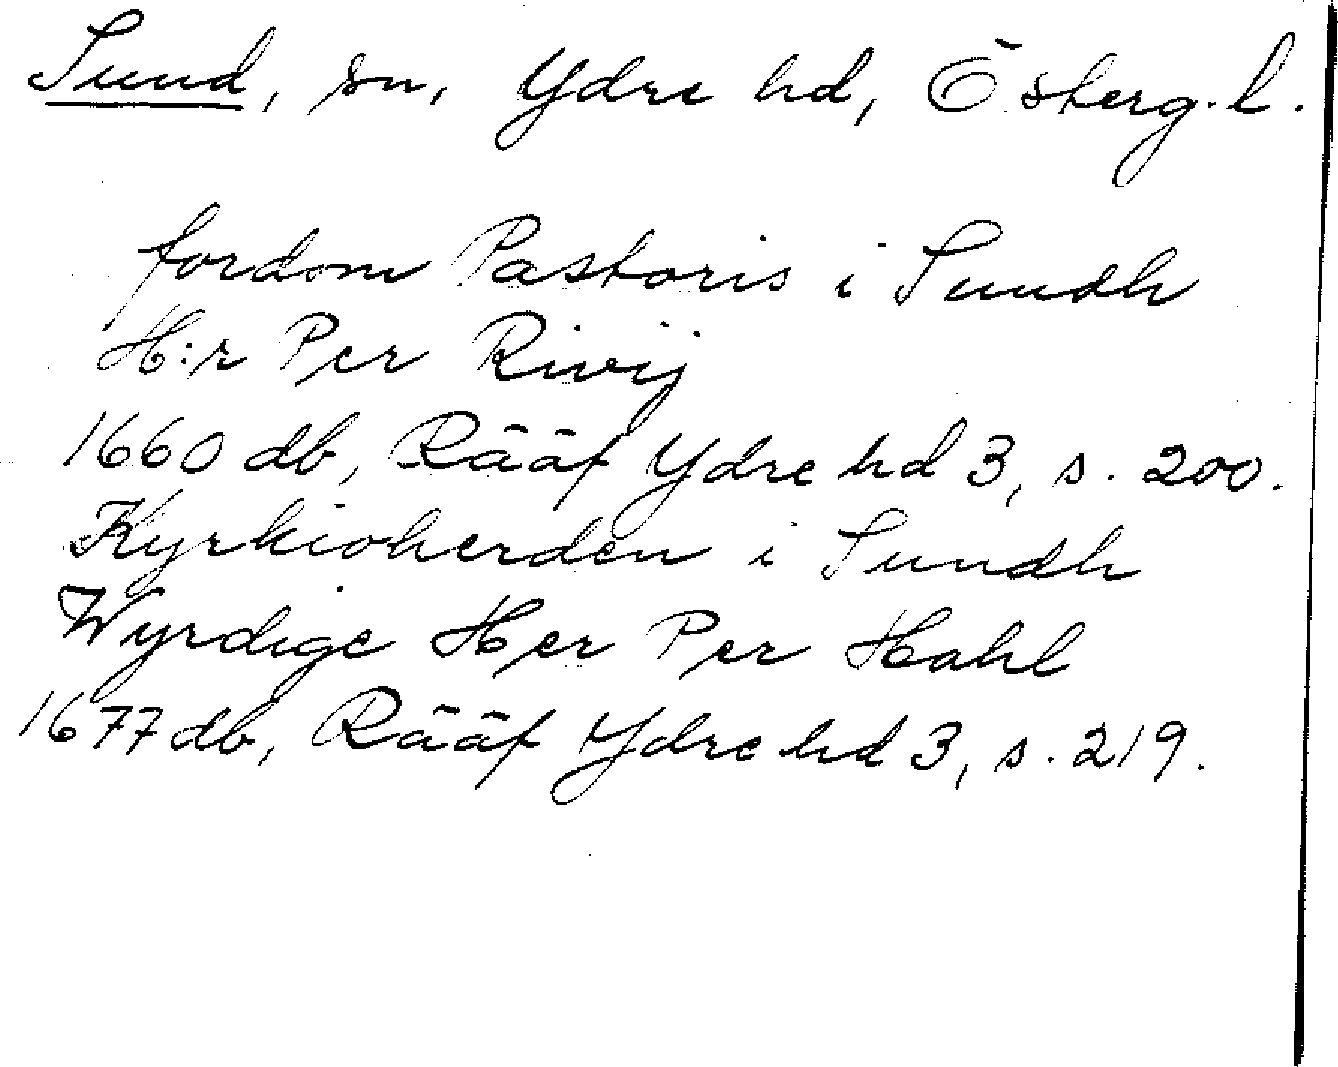 Sund, sn, Ydre hd, Östergl.
fordom Pastoris i Sundh
H:r Per Rivij
1660 db, Rääf Ydre hd 3, s. 200.
Kyrkioherden i Sundh
Wyrdige Her Per Hahl
1677 db, Rääf Ydre hd 3, s. 219.